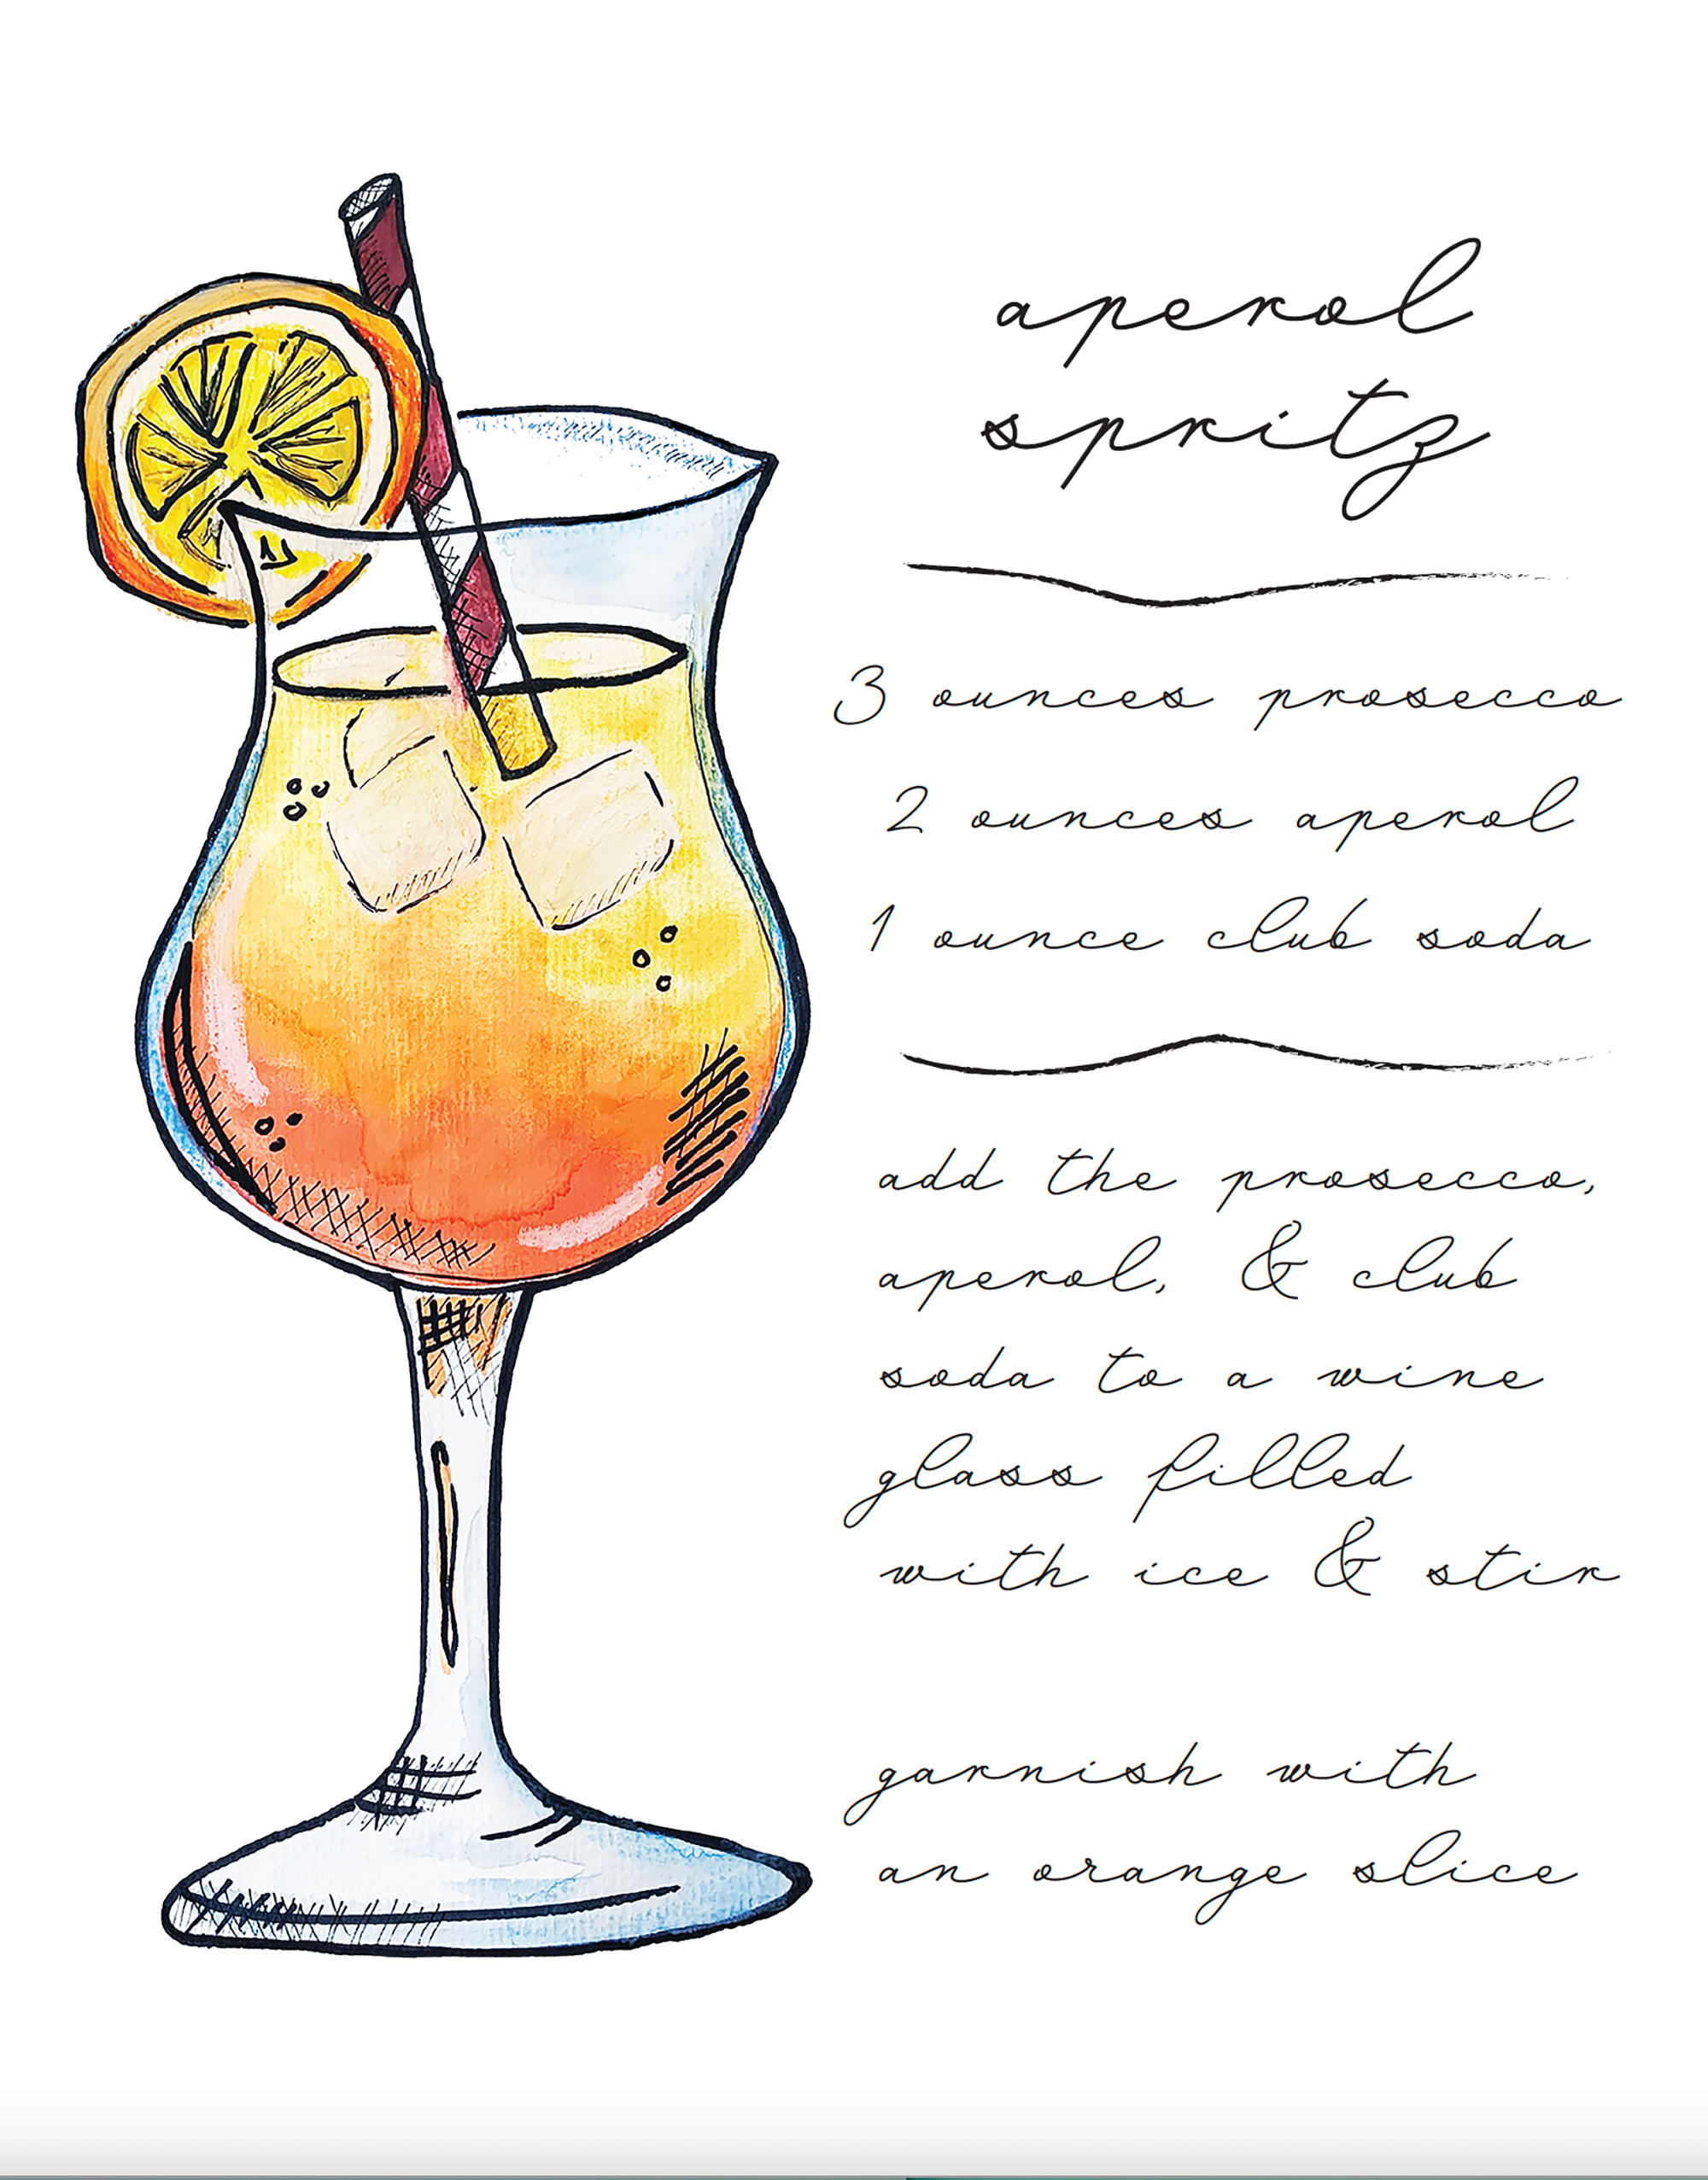 aperol
spritz
3 ounces prosecco
2 ounces aperol
1 ounce club soda
add the prosecco,
aperol, & club
soda to a wine
glass filled
with ice & stir
garnish with
an orange slice